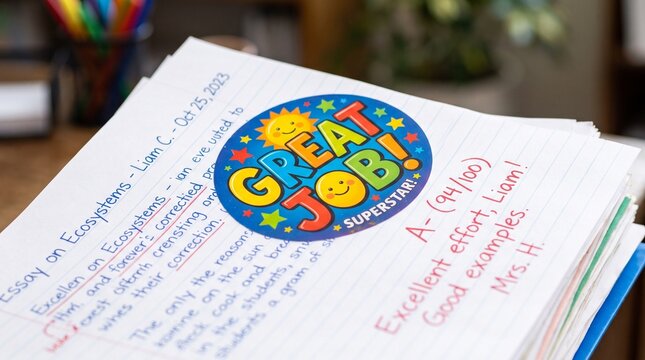 Essay on Ecosystems - Liam C. - Oct 25, 2023
Excellen on Ecosystems - ian eve voted to
and forever's correctied pre
crensting
wines their correction.
The only the reasons
examine on the sun
cook and
in the students,
students a gram of
GREAT
JOB!
SUPERSTAR!
A- (94/100)
Excellent effort, Liam!
Good examples.
Mrs. H.